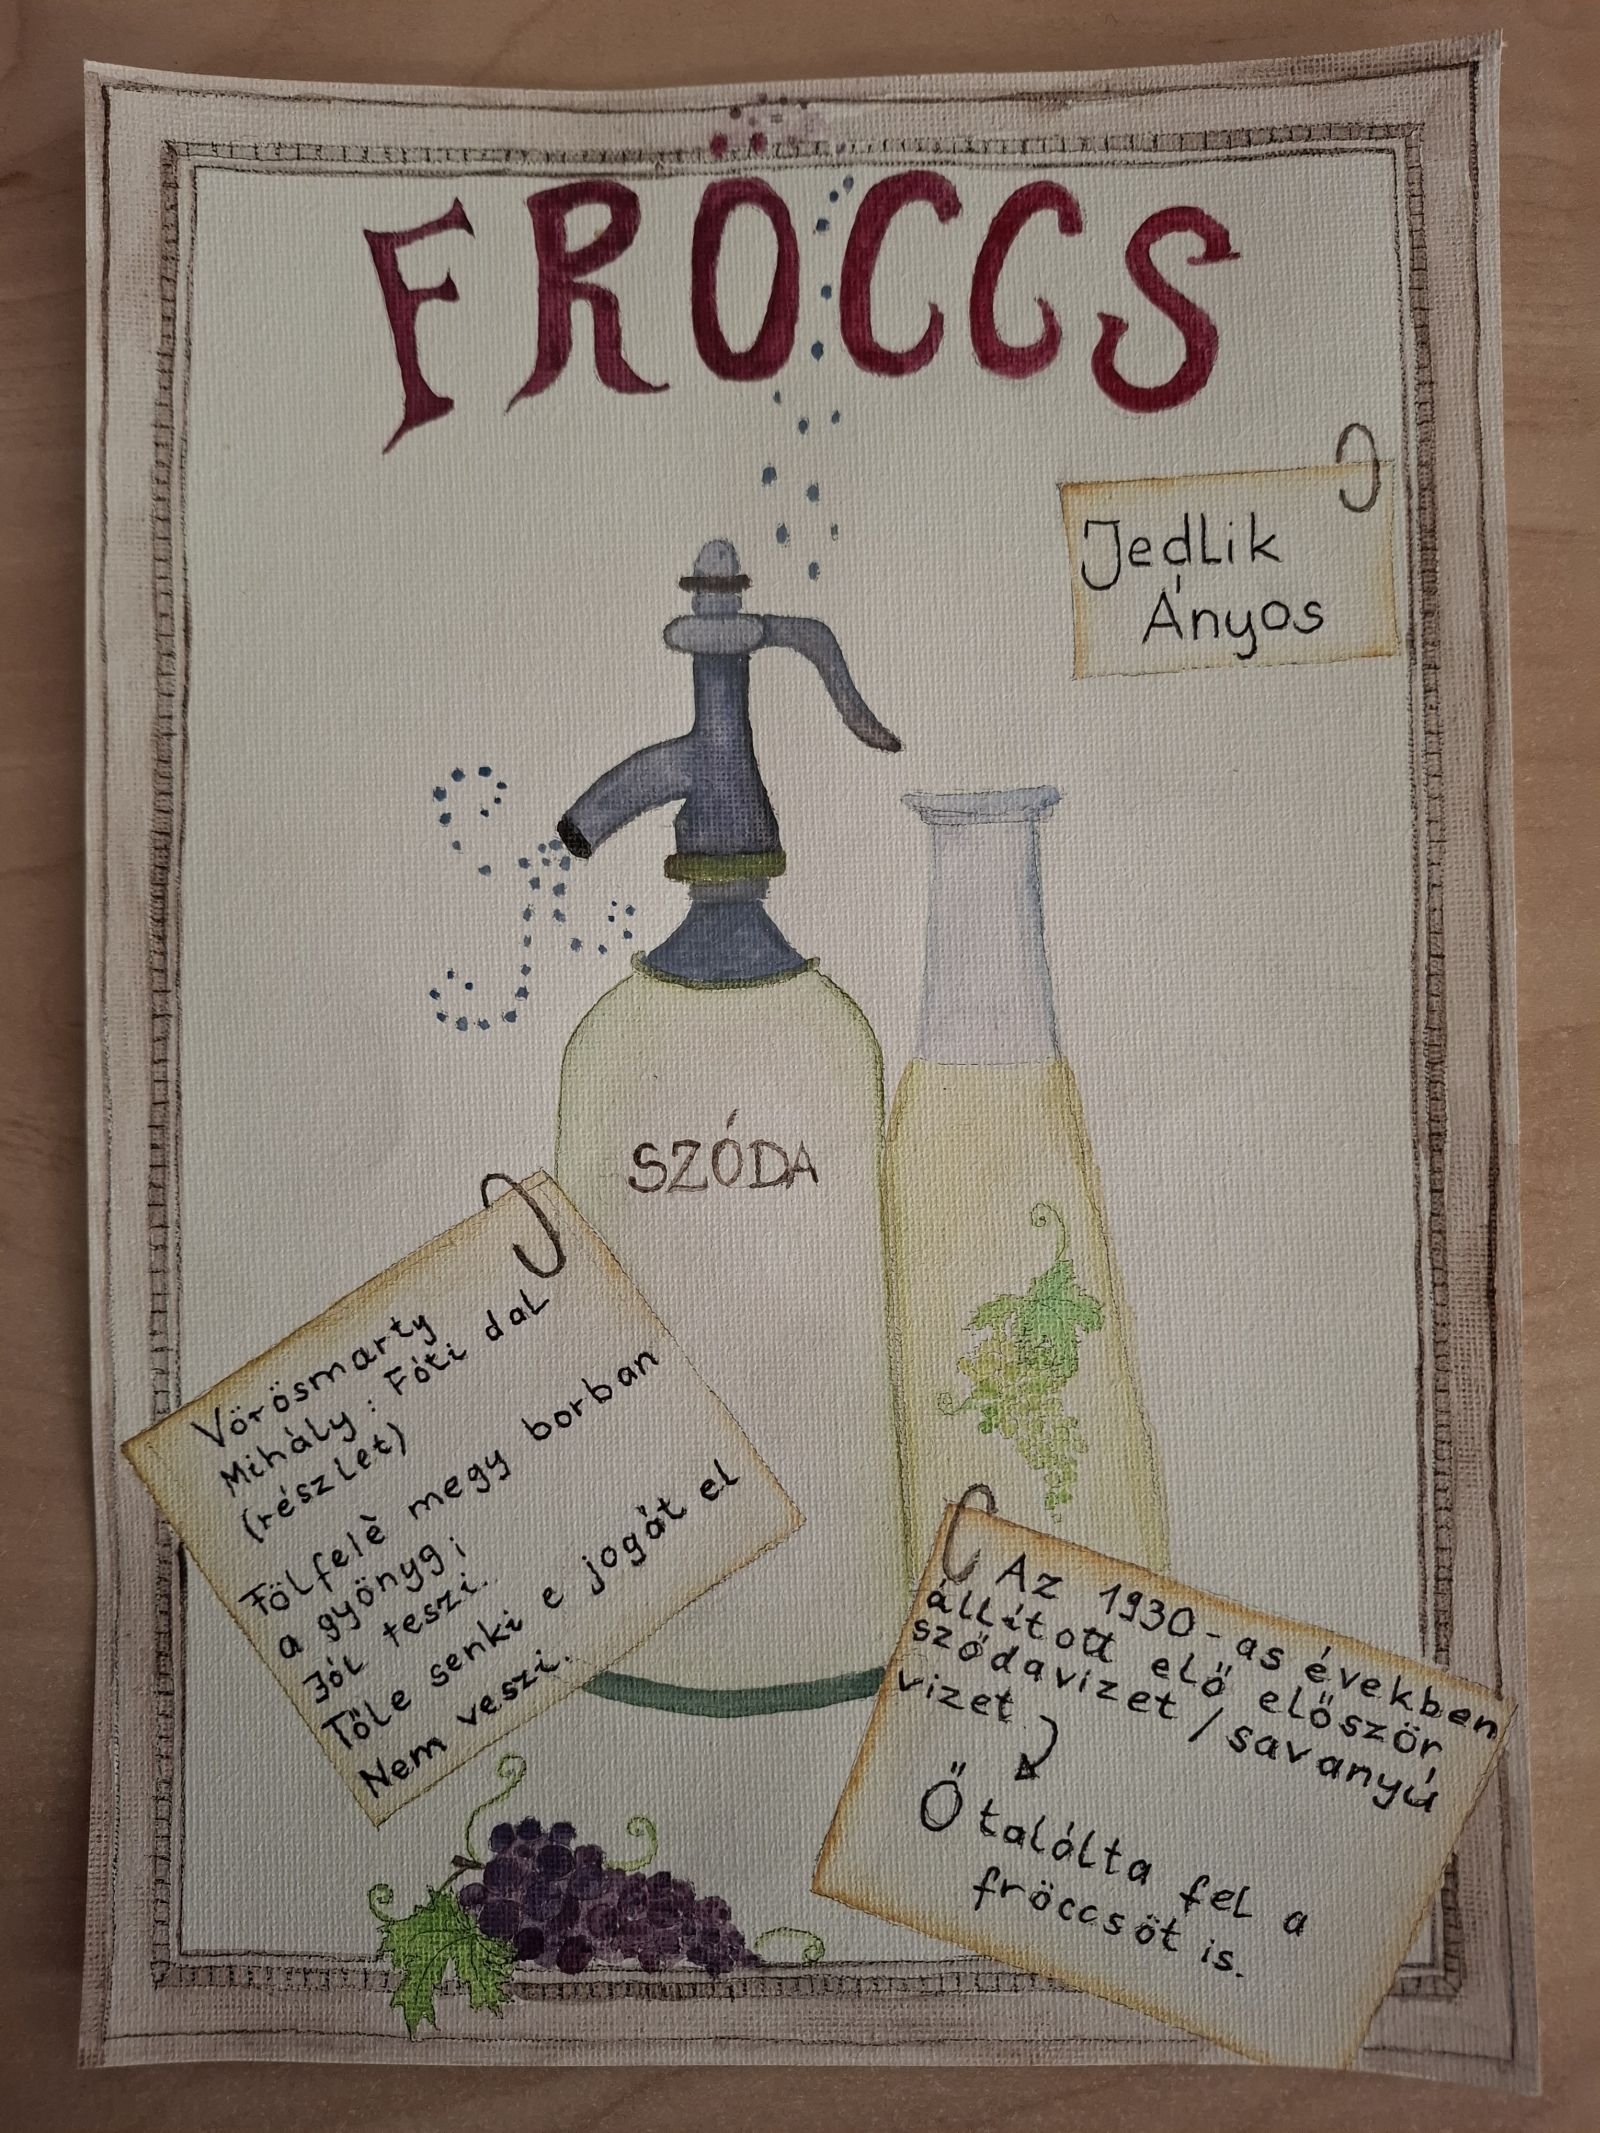 FRÖCCS
Jedlik
Ányos
SZÓDA
Vörösmarty
Mihály: Fóti dal
(részlet)
Fölfelè megy borban
a gyöngy;
Jól teszi.
Tőle senki e jogát el
Nem veszi.
Az 1930-as években
állított elő először
szódavizet/savanyú
vizet
Ő talólta fel a
fröccsöt is.